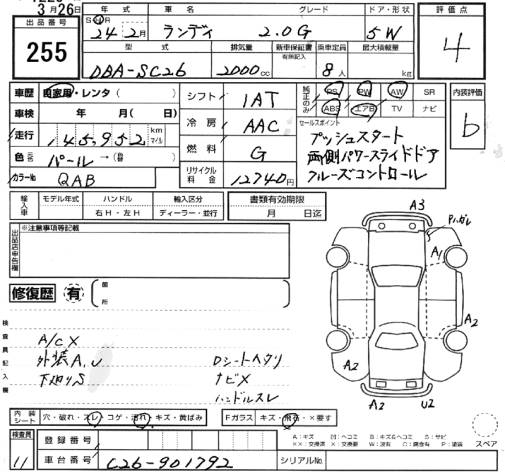 3月26日
出品番号
255
年式 車名 グレード ドア・形状
S・H 24年2月 ランディ 2.0G 5W
型式 排気量 新車保証書 有無記入 乗車定員 最大積載量
DBA-SC26 2000cc 8人 kg
評価点
4
車歴 自家用・レンタ( )
車検 年 月(日)
走行 145952 km マイル
色 パール→(替)
カラーNo. QAB
シフト IAT
冷房 AAC
燃料 G
リサイクル料金 12740円
純正のみ PS PW AW SR
ABS エアB TV ナビ
セールスポイント
プッシュスタート
両側パワースライドドア
クルーズコントロール
内装評価
b
輸入車 モデル年式 ハンドル 輸入区分
右H・左H ディーラー・並行
書類有効期限
月 日迄
出品店申告欄
※注意事項等記載
修復歴 有 箇所
検査員記入欄
A/C X
外装A,U
下廻りS
Dシートヘタリ
ナビX
ハンドルスレ
A3
Pハガレ
A1
A2
A2
A2
U2
スペア
内装シート 穴・破れ・スレ・コゲ・汚れ・キズ・黄ばみ
Fガラス キズ・飛石・×要す
A:キズ U:ヘコミ B:キズ&ヘコミ S:サビ
××:交換済 X:交換要 W:波有 C:腐食有 P:塗装
検査員
11
登録番号
車台番号 C26-901792
シリアルNo.